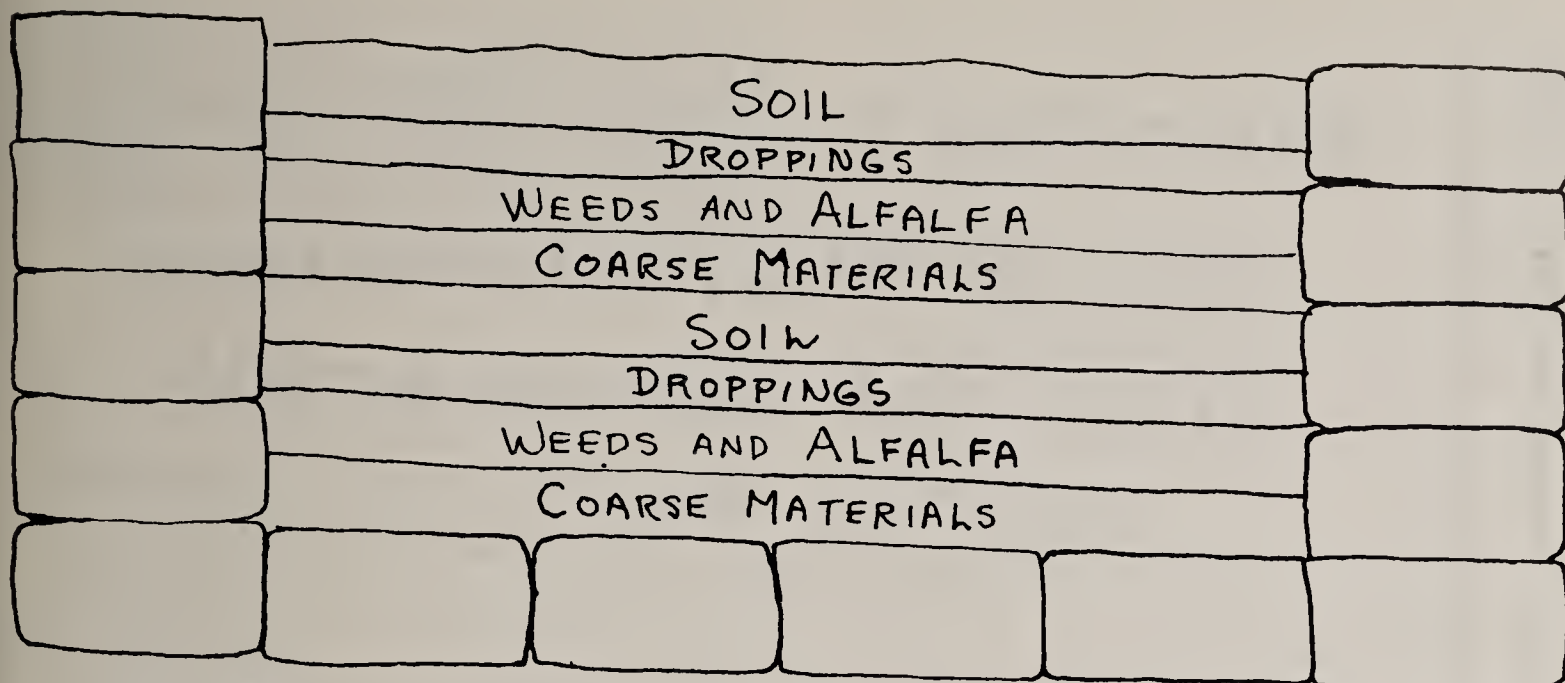 SOIL
DROPPINGS
WEEDS AND ALFALFA
COARSE MATERIALS
SOIL
DROPPINGS
WEEDS AND ALFALFA
COARSE MATERIALS